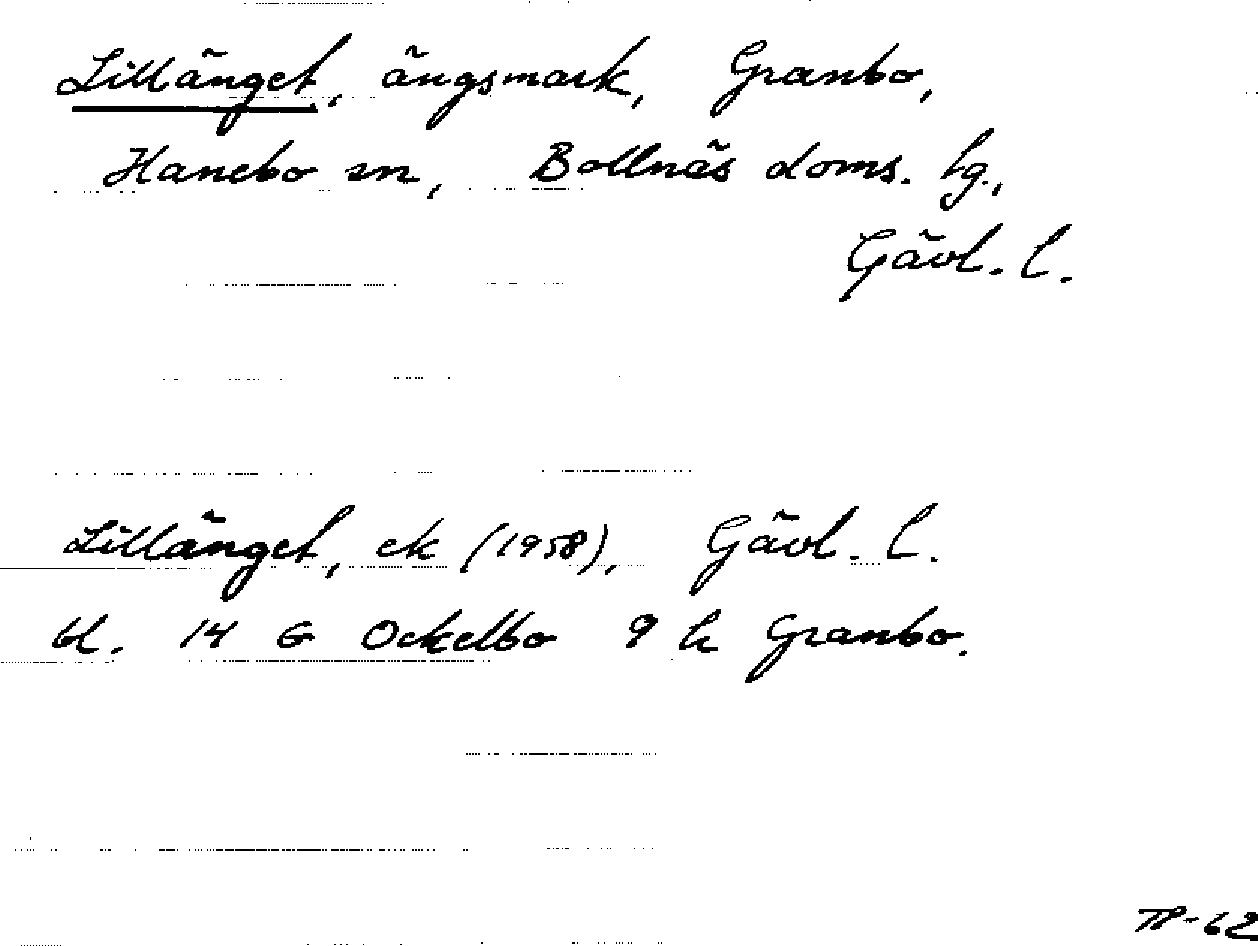 Lillänget, ängsmark, Granbo,
Hanebo sn, Bollnäs doms. hg.,
Gävl. l.
Lillänget, ek (1958), Gävl. l.
bl. 14 G Ockelbo 9 h Granbo.
TP-62